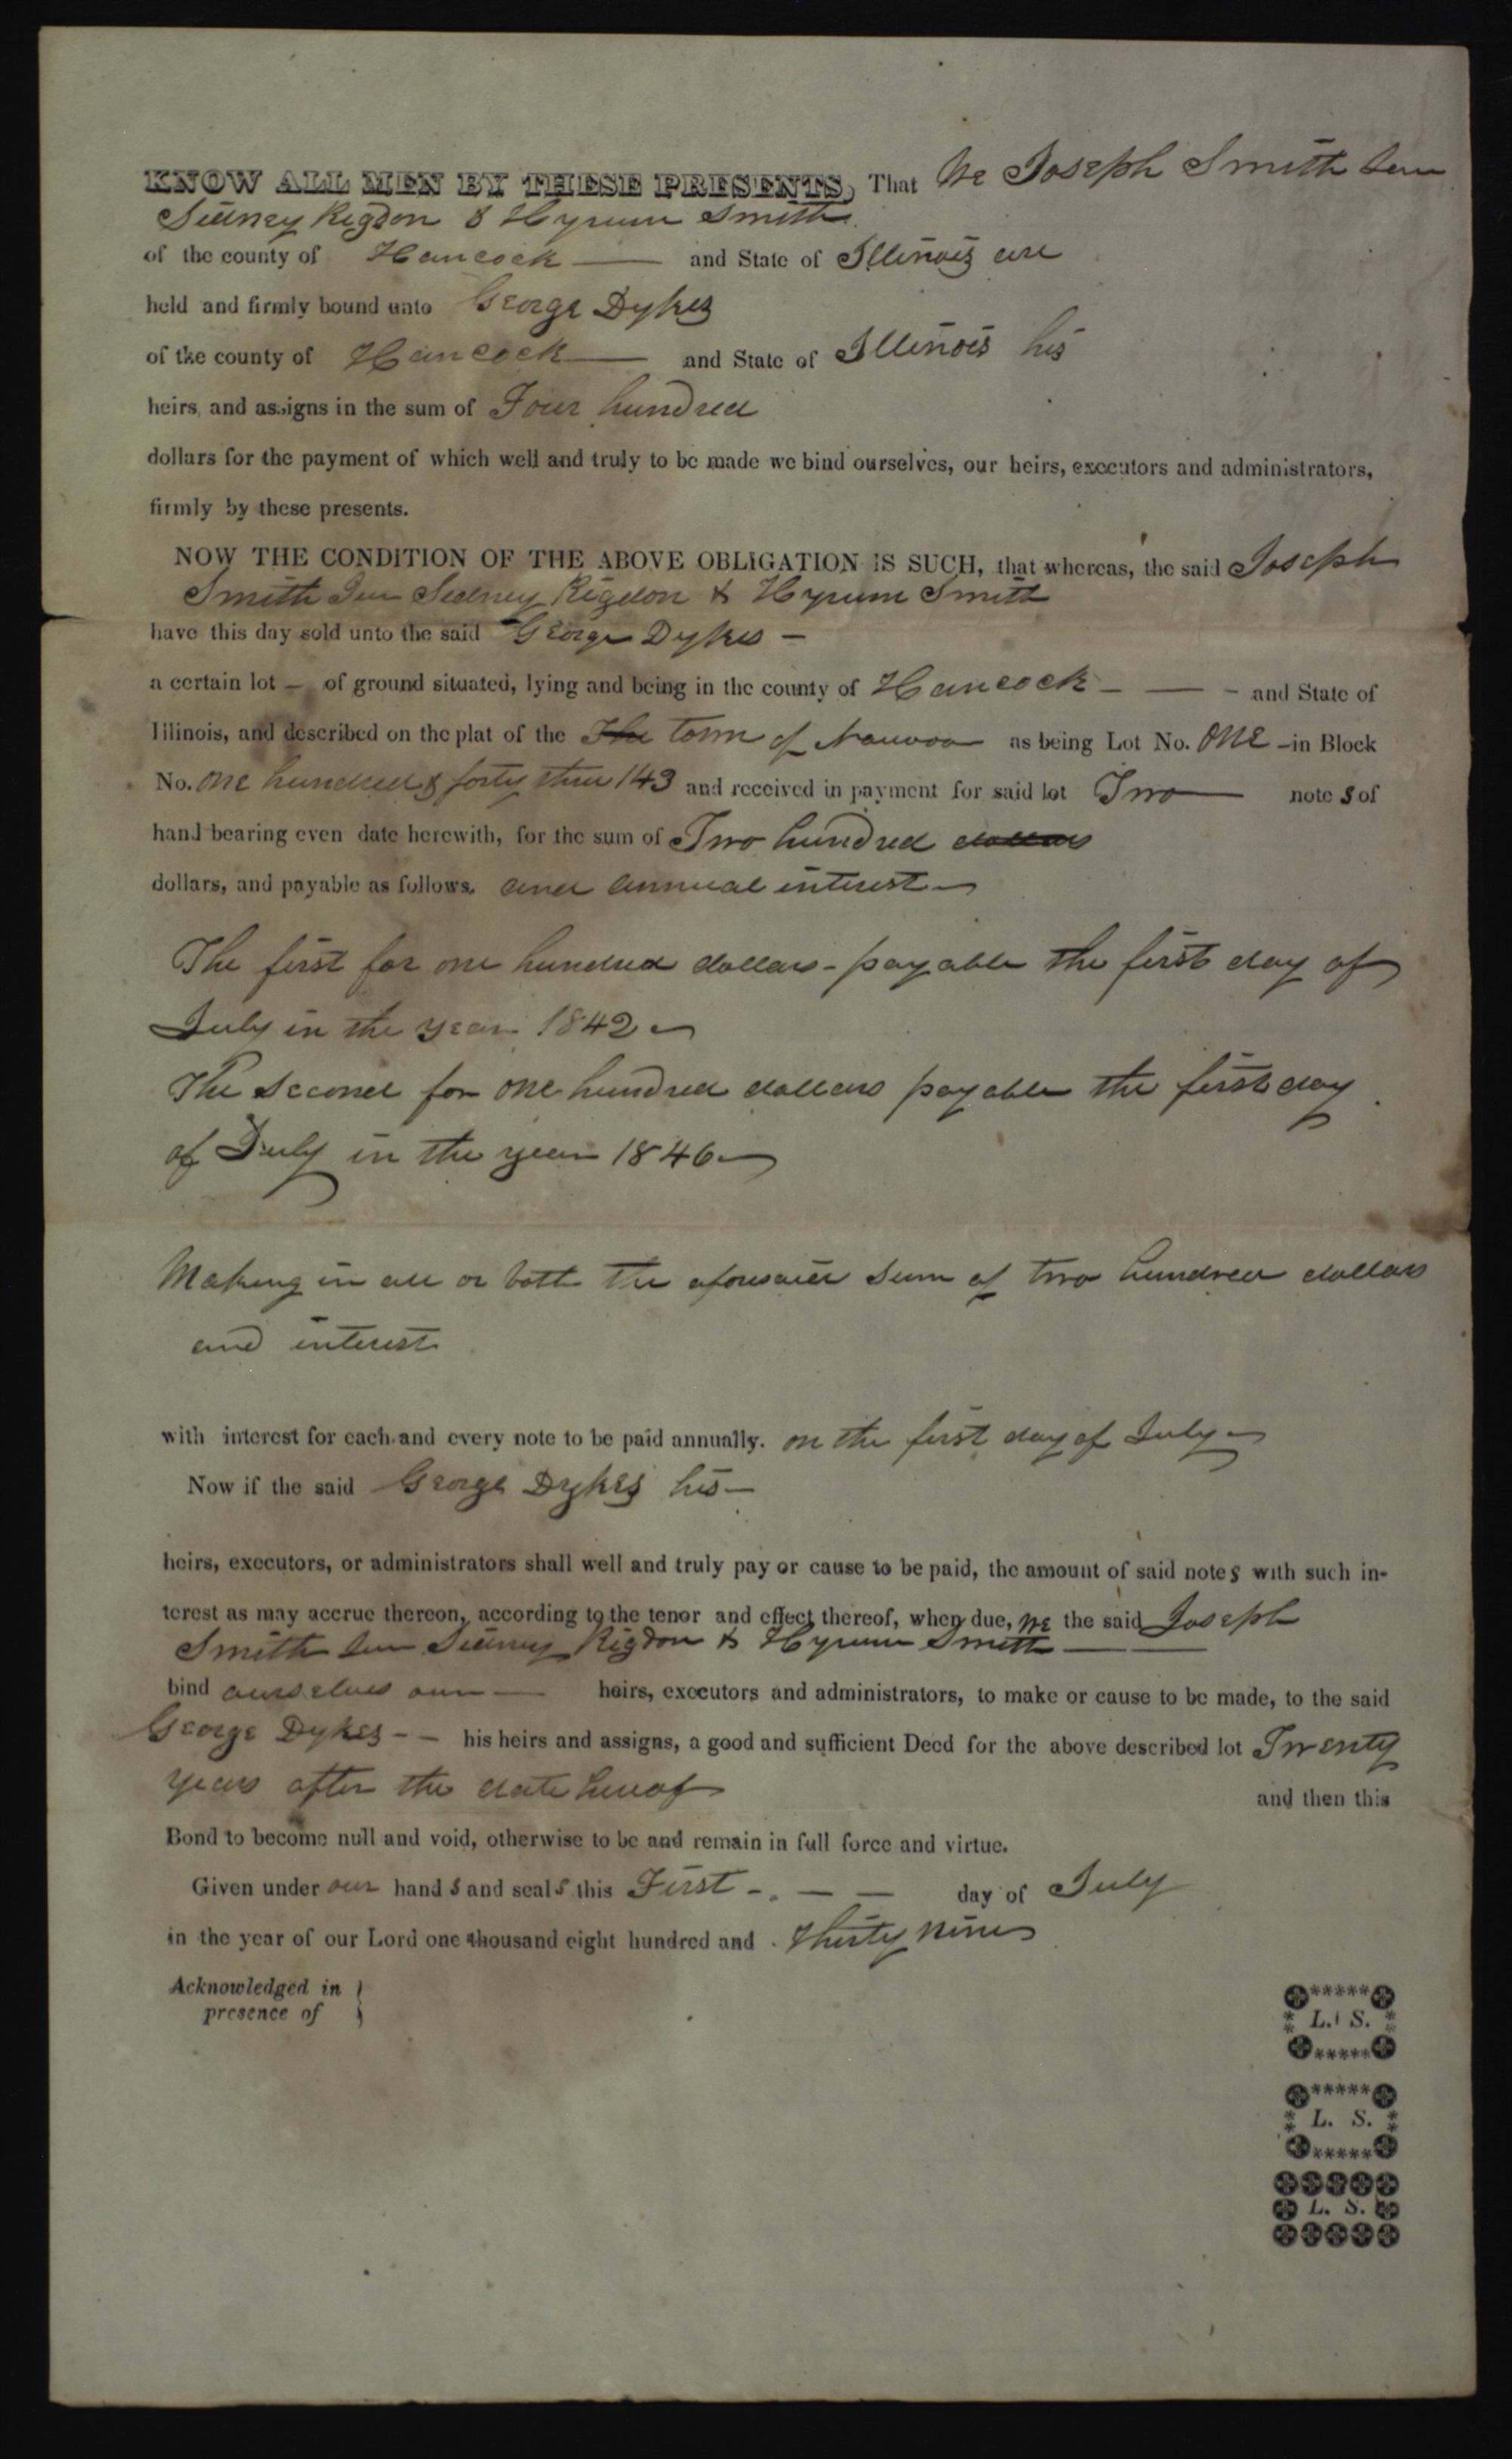 KNOW ALL MEN BY THESE PRESENTS, That We Joseph Smith Jun
Sidney Rigdon & Hyrum Smith.
of the county of Hancock — and State of Illinois are
held and firmly bound unto George Dykes
of the county of Hancock — and State of Illinois his
heirs, and assigns in the sum of Four hundred
dollars for the payment of which well and truly to be made we bind ourselves, our heirs, executors and administrators,
firmly by these presents.
NOW THE CONDITION OF THE ABOVE OBLIGATION IS SUCH, that whereas, the said Joseph
Smith Jun Sidney Rigdon & Hyrum Smith
have this day sold unto the said George Dykes —
a certain lot — of ground situated, lying and being in the county of Hancock - — - and State of
Illinois, and described on the plat of the The town of Nauvoo as being Lot No. one - in Block
No. one hundred & forty three 143 and received in payment for said lot Two — note s of
hand bearing even date herewith, for the sum of Two hundred dollars
dollars, and payable as follows. and annual interest —
The first for one hundred dollars - payable the first day of
July in the year 1842 —
The second for one hundred dollars payable the first day
of July in the year 1846 —
Making in all or both the aforesaid sum of two hundred dollars
and interest
with interest for each and every note to be paid annually. on the first day of July —
Now if the said George Dykes his —
heirs, executors, or administrators shall well and truly pay or cause to be paid, the amount of said note s with such in-
terest as may accrue thereon, according to the tenor and effect thereof, when due, we the said Joseph
Smith Jun Sidney Rigdon & Hyrum Smith — —
bind ourselves our — heirs, executors and administrators, to make or cause to be made, to the said
George Dykes - - his heirs and assigns, a good and sufficient Deed for the above described lot Twenty
years after the date hereof and then this
Bond to become null and void, otherwise to be and remain in full force and virtue.
Given under our hand s and seal s this First - . — — day of July
in the year of our Lord one thousand eight hundred and Thirty nine
Acknowledged in }
presence of }
L. S.
L. S.
L. S.